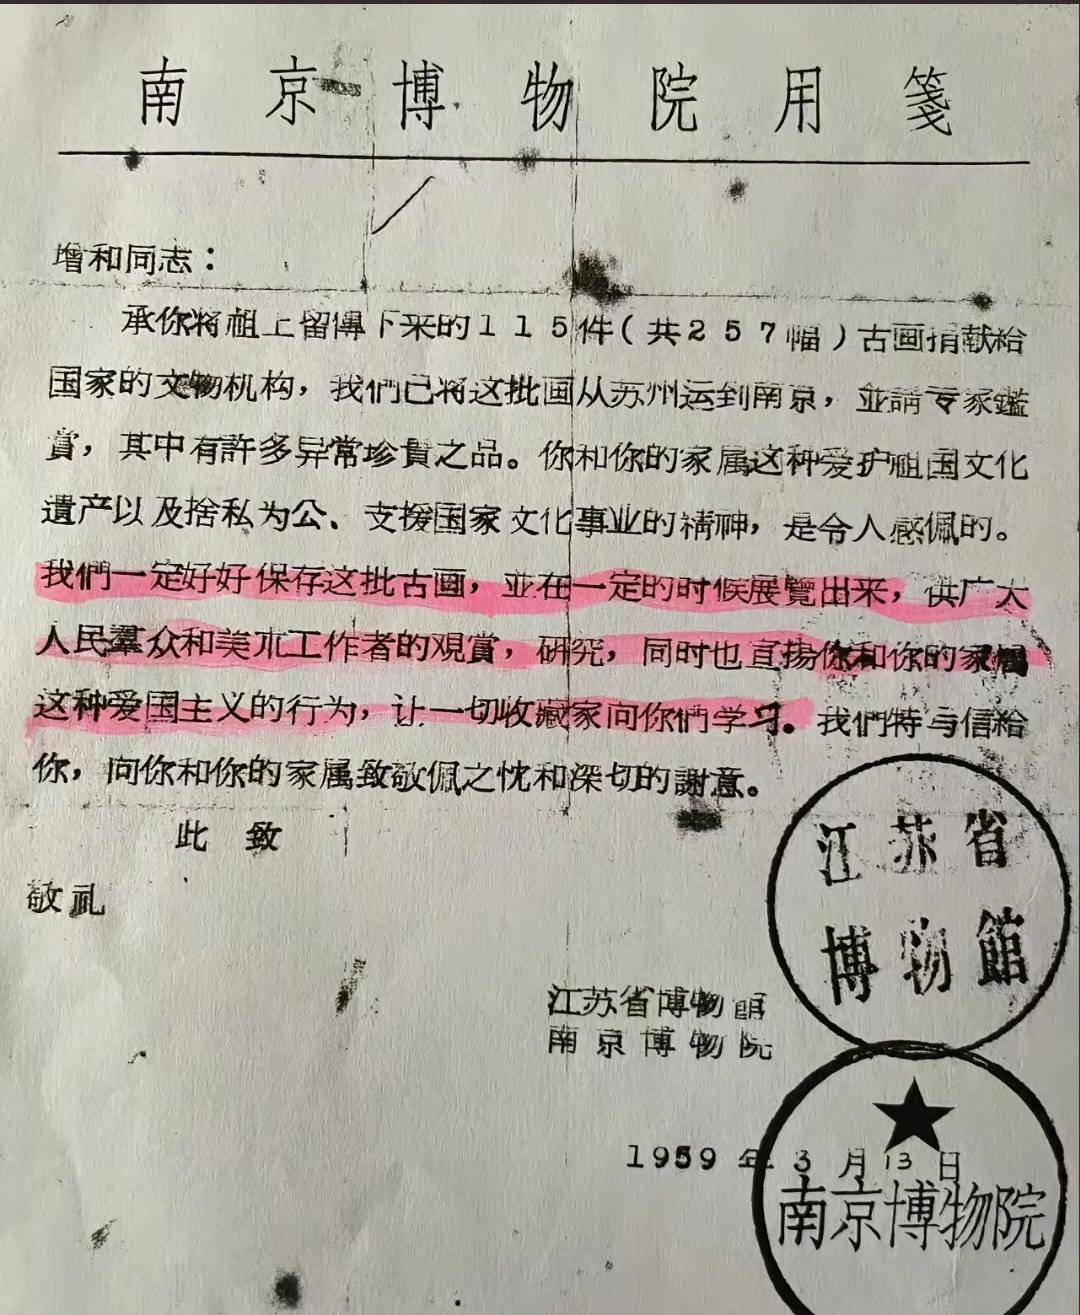 南京博物院用箋
增和同志：
承你将祖上留傳下来的115件(共257幅)古画捐献给
国家的文物机构，我們已将这批画从苏州运到南京，並請专家鑑
賞，其中有許多异常珍貴之品。你和你的家属这种爱护祖国文化
遺产以及捨私为公、支援国家文化事业的精神，是令人感佩的。
我們一定好好保存这批古画，並在一定的时候展覽出来，供广大
人民羣众和美朮工作者的观賞，研究，同时也宣揚你和你的家属
这种爱国主义的行为，让一切收藏家向你們学习。我們特写信給
你，向你和你的家属致敬佩之忱和深切的謝意。
此致
敬礼
江苏省
博物館
江苏省博物館
南京博物院
1959年3月13日
南京博物院